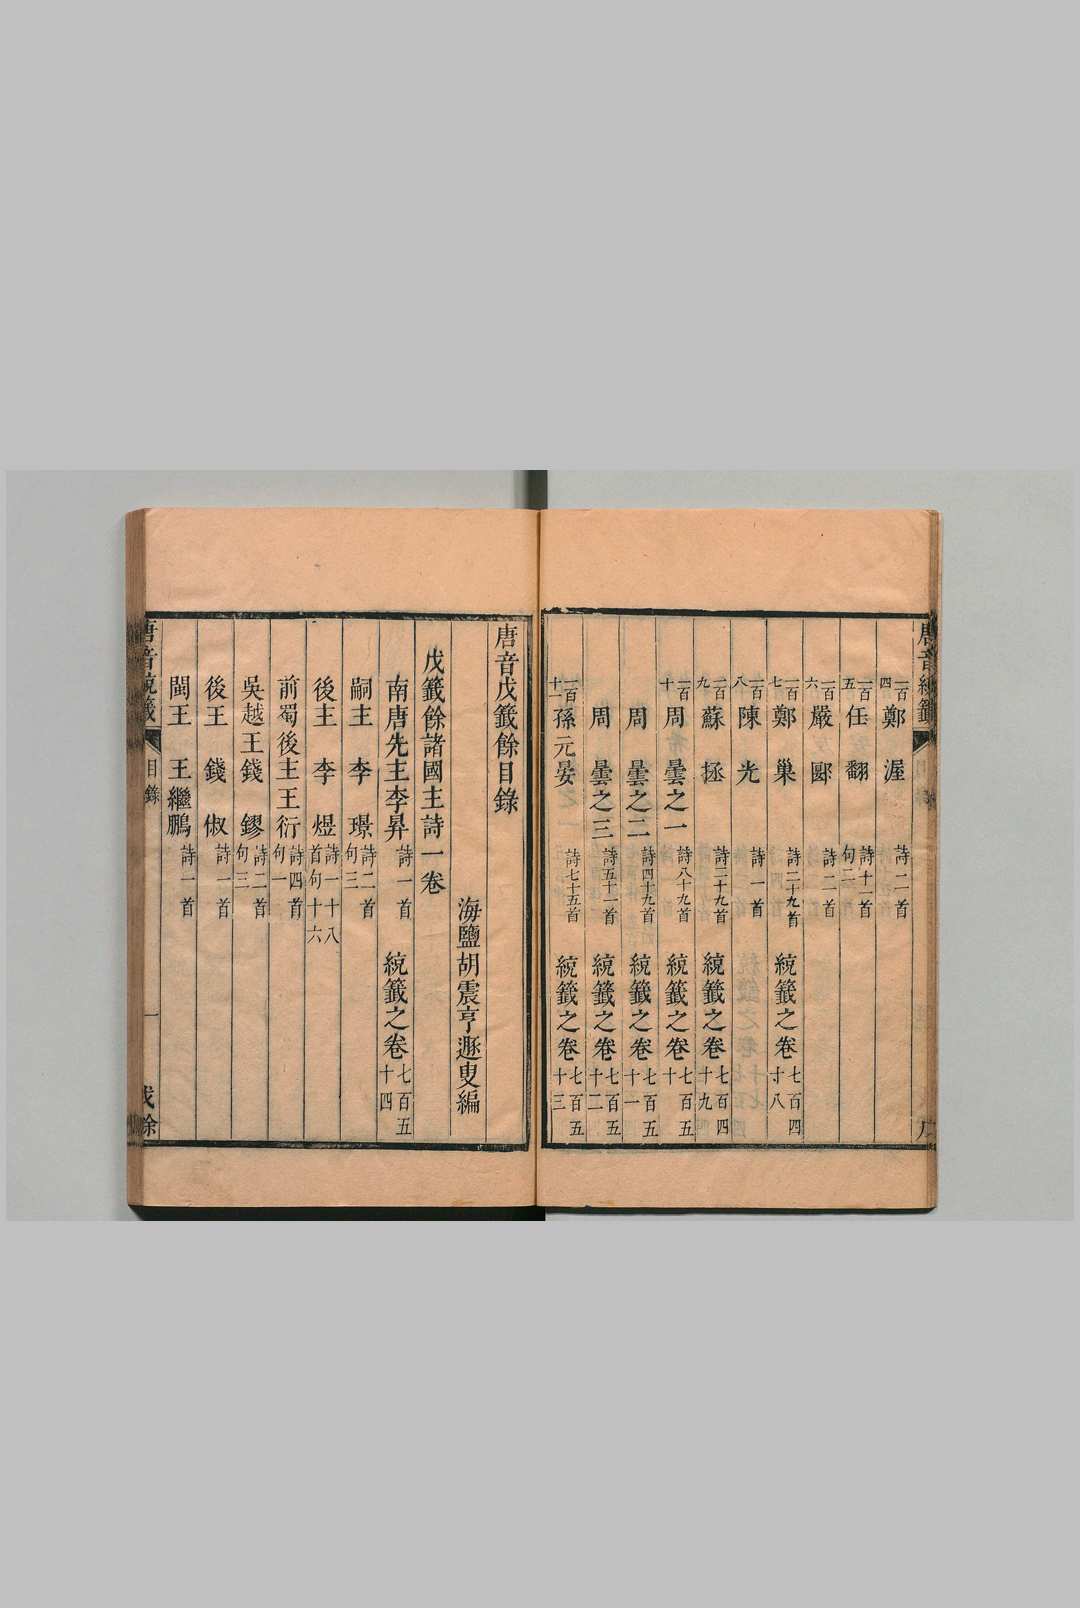 一百四 鄭渥 詩二首
一百五 任翻 詩十一首句二
一百六 嚴郾 詩二首
一百七 鄭巢 詩二十九首 統籤之卷七百四十八
一百八 陳光 詩一首
一百九 蘇拯 詩二十九首 統籤之卷七百四十九
一百十 周曇之一 詩八十九首 統籤之卷七百五十
周曇之二 詩四十九首 統籤之卷七百五十一
周曇之三 詩五十一首 統籤之卷七百五十二
一百十一 孫元晏 詩七十五首 統籤之卷七百五十三
唐音戊籤餘目錄
海鹽胡震亨遯叟編
戊籤餘諸國主詩一卷
南唐先主李昪 詩一首 統籤之卷七百五十四
嗣主李璟 詩二首句三
後主李煜 詩一十八首句十六
前蜀後主王衍 詩四首句一
吳越王錢鏐 詩二首句三
後王錢俶 詩一首
閩王王繼鵬 詩一首
唐音統籤 目錄 一 戊餘